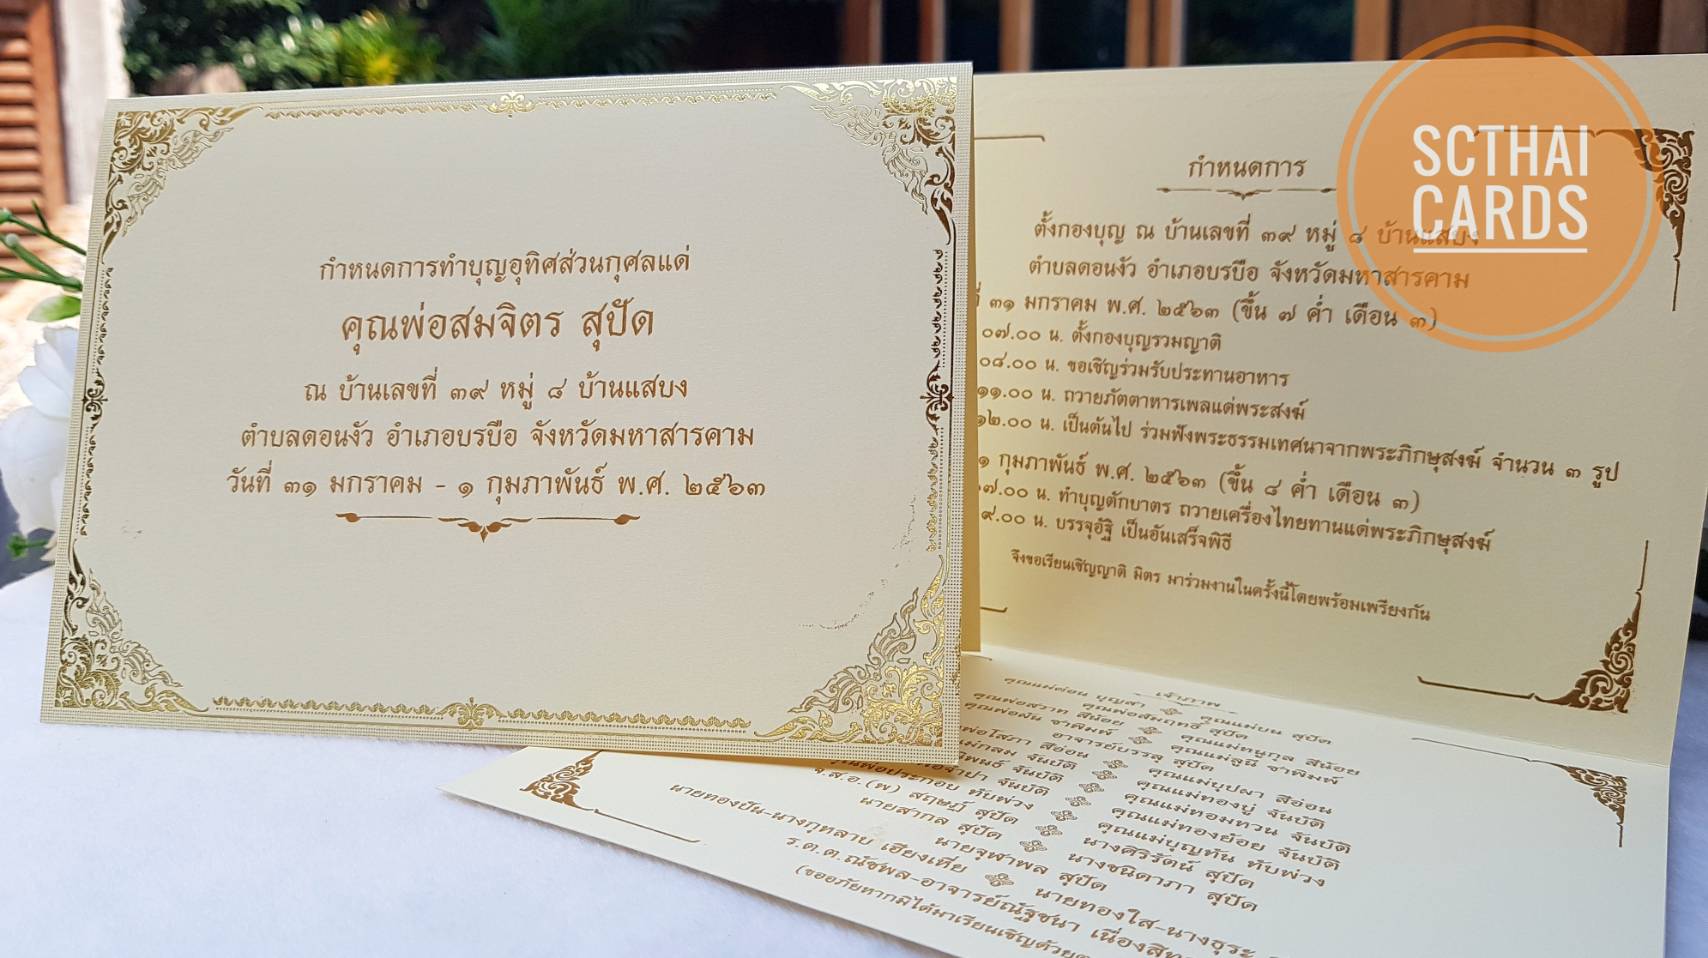 กำหนดการทำบุญอุทิศส่วนกุศลแด่
คุณพ่อสมจิตร สุปัด
ณ บ้านเลขที่ ๓๙ หมู่ ๘ บ้านแสบง
ตำบลดอนงัว อำเภอบรบือ จังหวัดมหาสารคาม
วันที่ ๓๑ มกราคม - ๑ กุมภาพันธ์ พ.ศ. ๒๕๖๓
SCTHAI
CARDS
กำหนดการ
ตั้งกองบุญ ณ บ้านเลขที่ ๓๙ หมู่ ๘ บ้านแสบง
ตำบลดอนงัว อำเภอบรบือ จังหวัดมหาสารคาม
๓๑ มกราคม พ.ศ. ๒๕๖๓ (ขึ้น ๗ ค่ำ เดือน ๓)
๐๗.๐๐ น. ตั้งกองบุญรวมญาติ
๐๘.๐๐ น. ขอเชิญร่วมรับประทานอาหาร
๑๑.๐๐ น. ถวายภัตตาหารเพลแด่พระสงฆ์
๑๒.๐๐ น. เป็นต้นไป ร่วมฟังพระธรรมเทศนาจากพระภิกษุสงฆ์ จำนวน ๓ รูป
๑ กุมภาพันธ์ พ.ศ. ๒๕๖๓ (ขึ้น ๘ ค่ำ เดือน ๓)
๗.๐๐ น. ทำบุญตักบาตร ถวายเครื่องไทยทานแด่พระภิกษุสงฆ์
๙.๐๐ น. บรรจุอัฐิ เป็นอันเสร็จพิธี
จึงขอเรียนเชิญญาติ มิตร มาร่วมงานในครั้งนี้โดยพร้อมเพรียงกัน
เจ้าภาพ
คุณแม่ต่อน บุญสา คุณแม่บน สุปัด
คุณพ่อสวาท สีน้อย คุณแม่หนูกุล สีน้อย
คุณพ่อสมฤทธิ์ สุปัด
คุณพ่อผัน ชาพิมพ์ คุณแม่ลูนี ชาพิมพ์
อาจารย์บรรลุ สุปัด คุณแม่บุปผา สีอ่อน
พ่อโสภา สีอ่อน คุณแม่ทองปู่ จันบัติ
คุณแม่หอมหวน จันบัติ
คุณแม่ทองย้อย จันบัติ
คุณพ่อประกอบ ทับพ่วง คุณแม่บุญทัน ทับพ่วง
จ.ส.อ.(พ) สฤษฏ์ สุปัด นางศิริรัตน์ สุปัด
นายสากล สุปัด นางชนิดาภา สุปัด
นายจุฬาพล สุปัด
นายทองปัน-นางกุหลาบ เฮียงเหีย นายทองใส-นางธุระ
ร.ต.ต.ณัชพล-อาจารย์ณัฐชนา
(ขออภัยหากมิได้มาเรียนเชิญด้วย